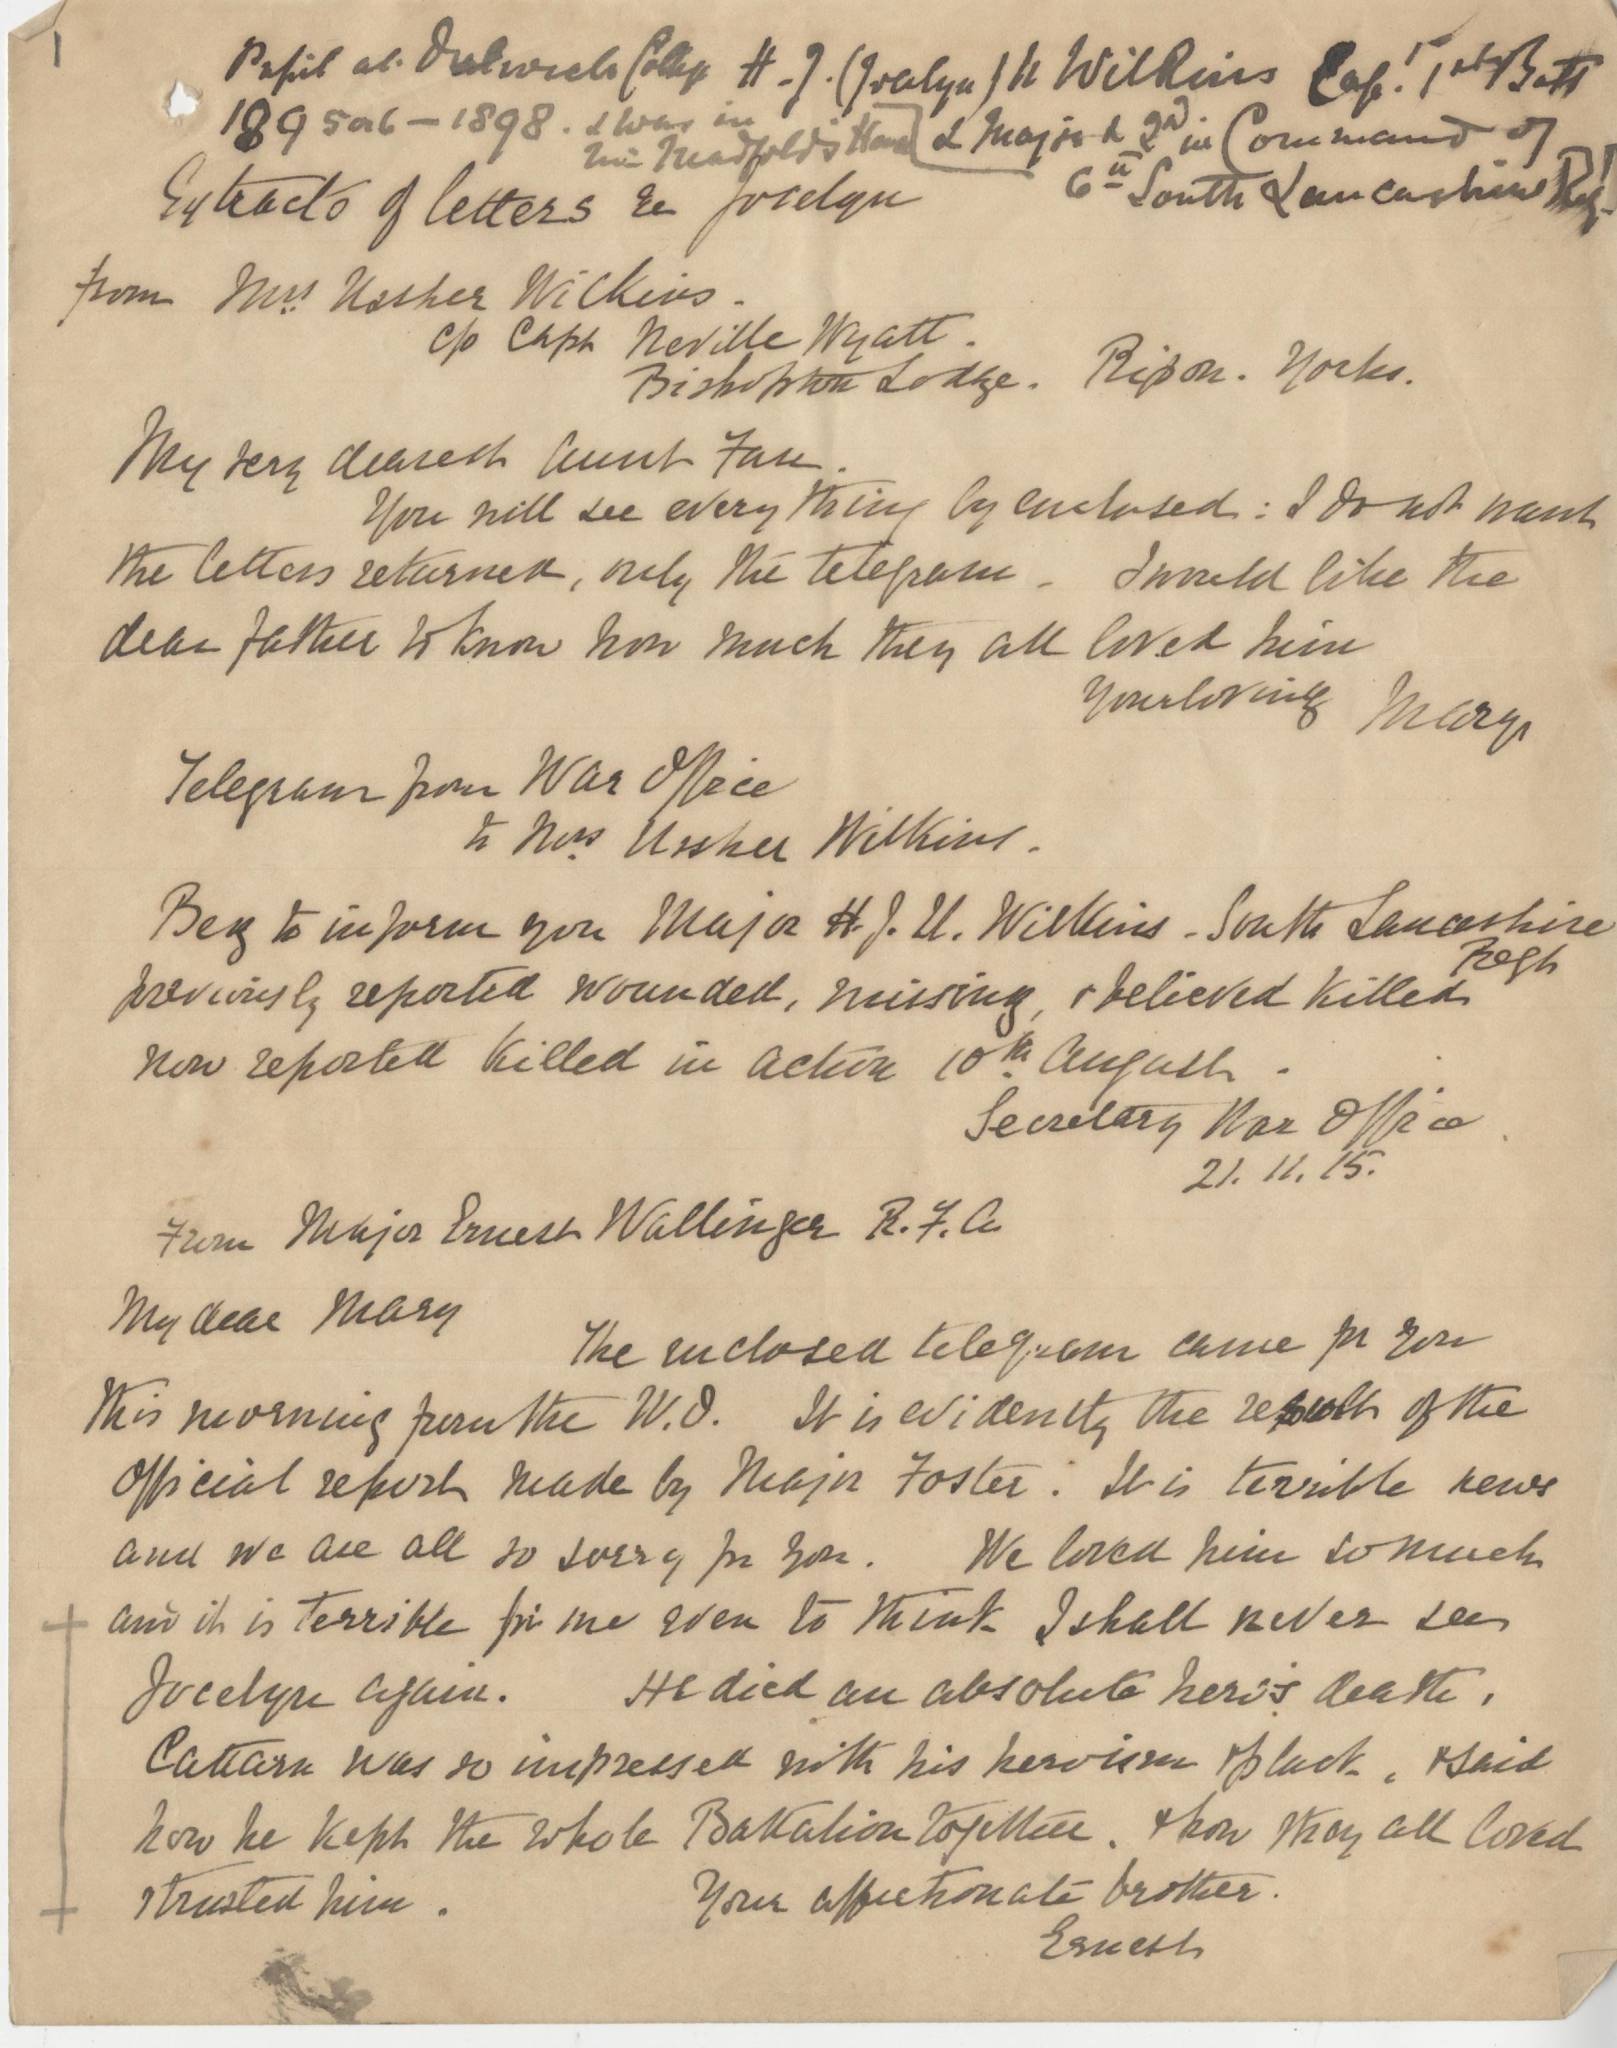 1
Pupil at Dulwich College H. J. (Jocelyn) U Wilkins Capt. 1st Batt
1895 or 6 – 1898. & was in & Major & 2nd in Command of
Mr Treadgold's House 6th South Lancashire Regt.
Extracts of letters re Jocelyn
from Mrs Ussher Wilkins.
c/o Capt Neville Wyatt.
Bishopton Lodge. Ripon. Yorks.
My very dearest Aunt Fan.
You will see everything by enclosed: I do not want
the letters returned, only the telegram. I would like the
dear father to know how much they all loved him
Your loving Mary
Telegram from War Office
to Mrs Ussher Wilkins.
Beg to inform you Major H. J. U. Wilkins. South Lancashire
Regt
previously reported wounded, missing, & believed killed
now reported killed in action 10th August.
Secretary War Office
21. 11. 15.
From Major Ernest Wallinger R. F. A
My dear Mary
The enclosed telegram came for you
this morning from the W.O. It is evidently the result of the
official report made by Major Foster. It is terrible news
and we are all so sorry for you. We loved him so much
and it is terrible for me even to think I shall never see
Jocelyn again. He died an absolute hero's death.
was so impressed with his heroism & pluck, & said
how he kept the whole Battalion together, & how they all loved
& trusted him. Your affectionate brother.
Ernest